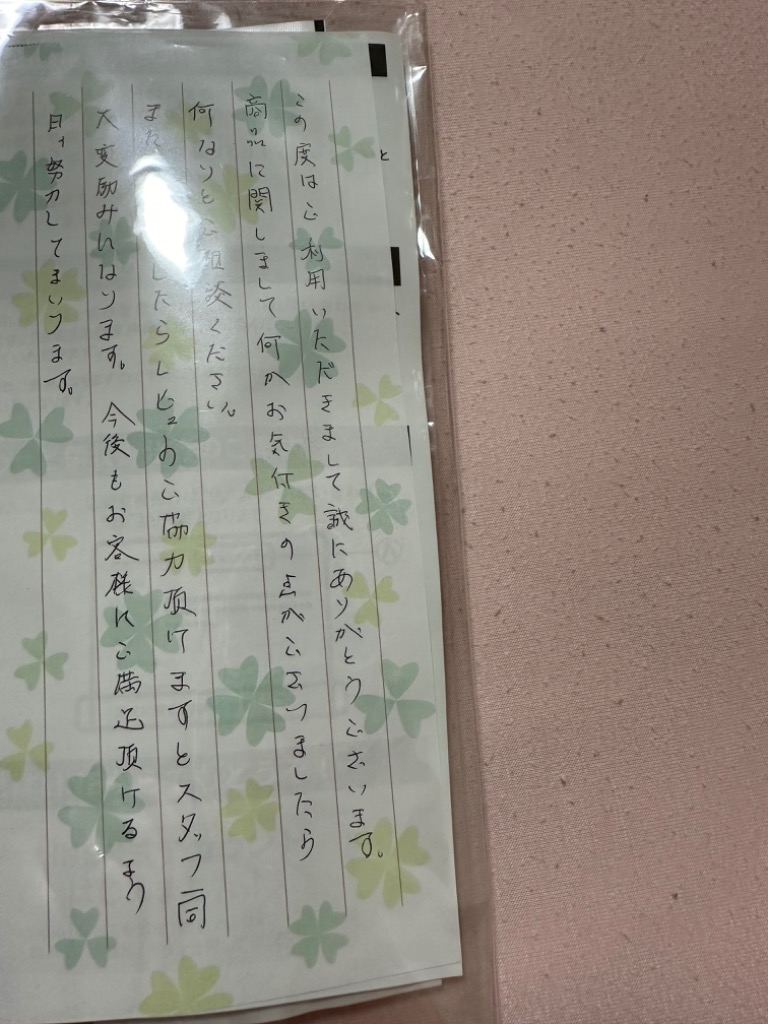 この度はご利用いただきまして誠にありがとうございます。
商品に関しまして何かお気付きの点がございましたら
何なりとご相談ください。
また したらレビューのご協力頂けますとスタッフ一同
大変励みになります。今後もお客様にご満足頂けるよう
日々努力してまいります。
と